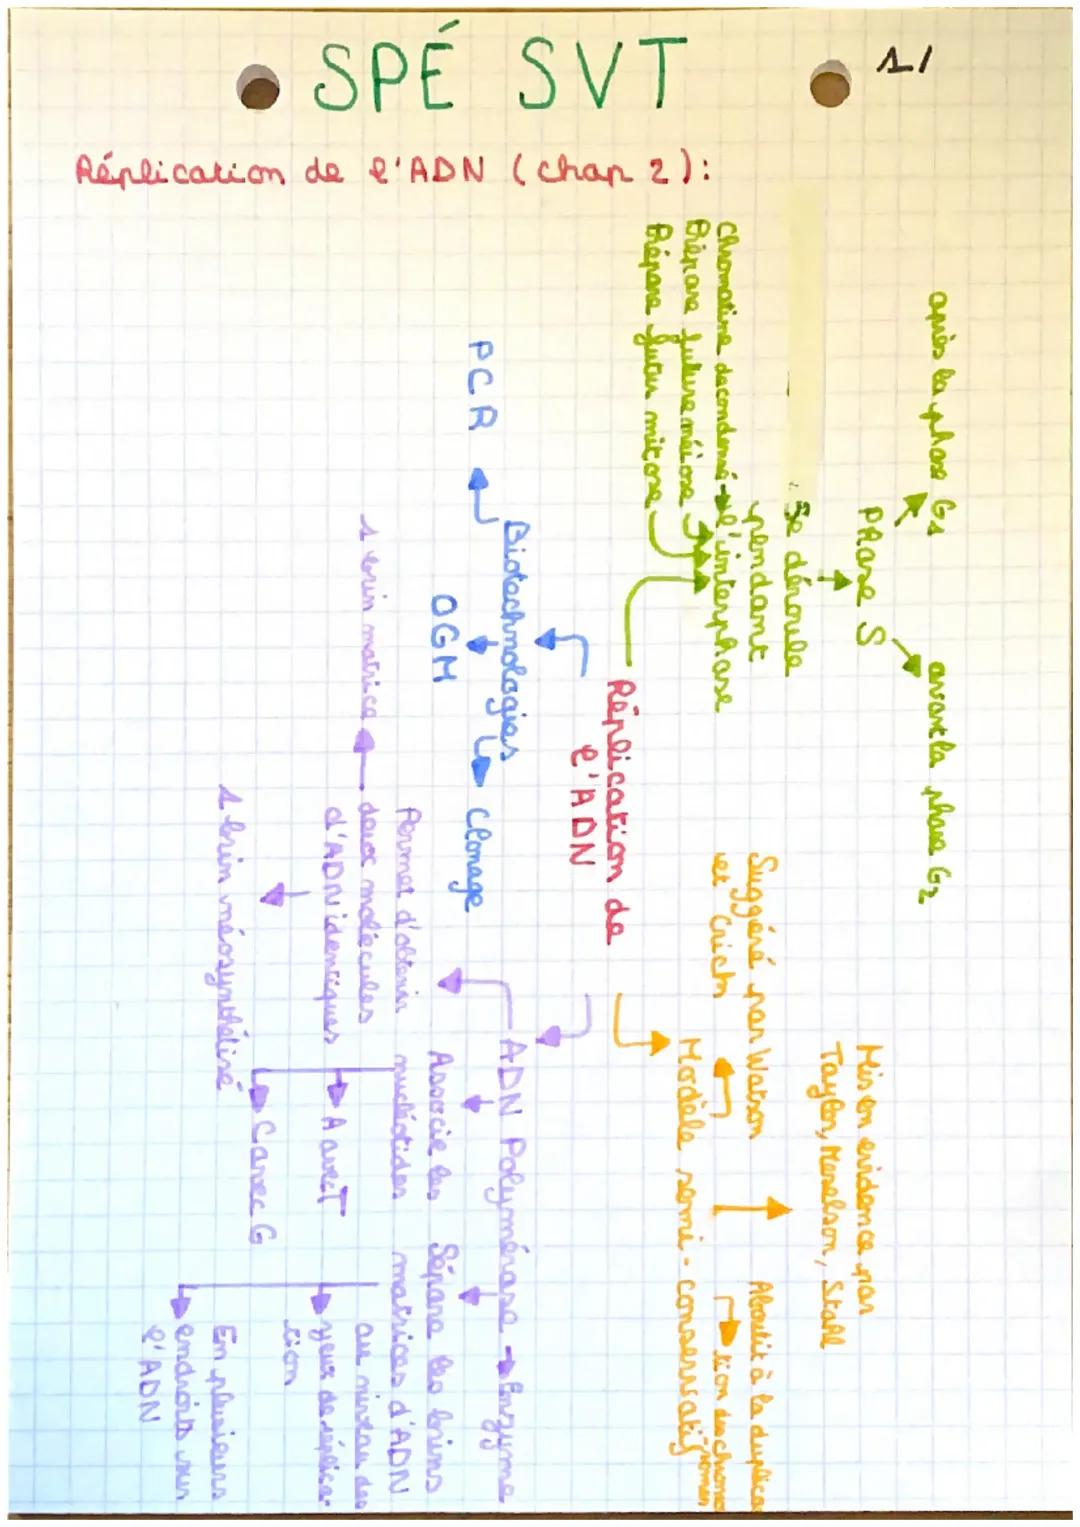 SPÉ SVT
1/
Réplication de l'ADN (chap 2):
après la phase G1
avant la phase G2
Phase S
Se déroule
pendant
l'interphase
Chromatine décondensé
Prépare future méiose
Prépare futur mitose
Réplication de
l'ADN
Mis en evidence par
Taylor, Meselson, Stall
Suggéré par Watson
et Crick
Aboutit à la duplica-
tion des chromo
-somes
Modèle semi-conservatif
Biotechnologies
PCR
OGM
Clonage
ADN Polymérase → Enzyme
Permet d'obtenir
deux molécules
d'ADN identiques
1 brin matrice
1 brin néosynthétisé
Associe les
nucléotides
A avec T
C avec G
Sépare les brins
matrices d'ADN
au niveau des
yeux de réplica-
tion
En plusieurs
endroits sur
l'ADN